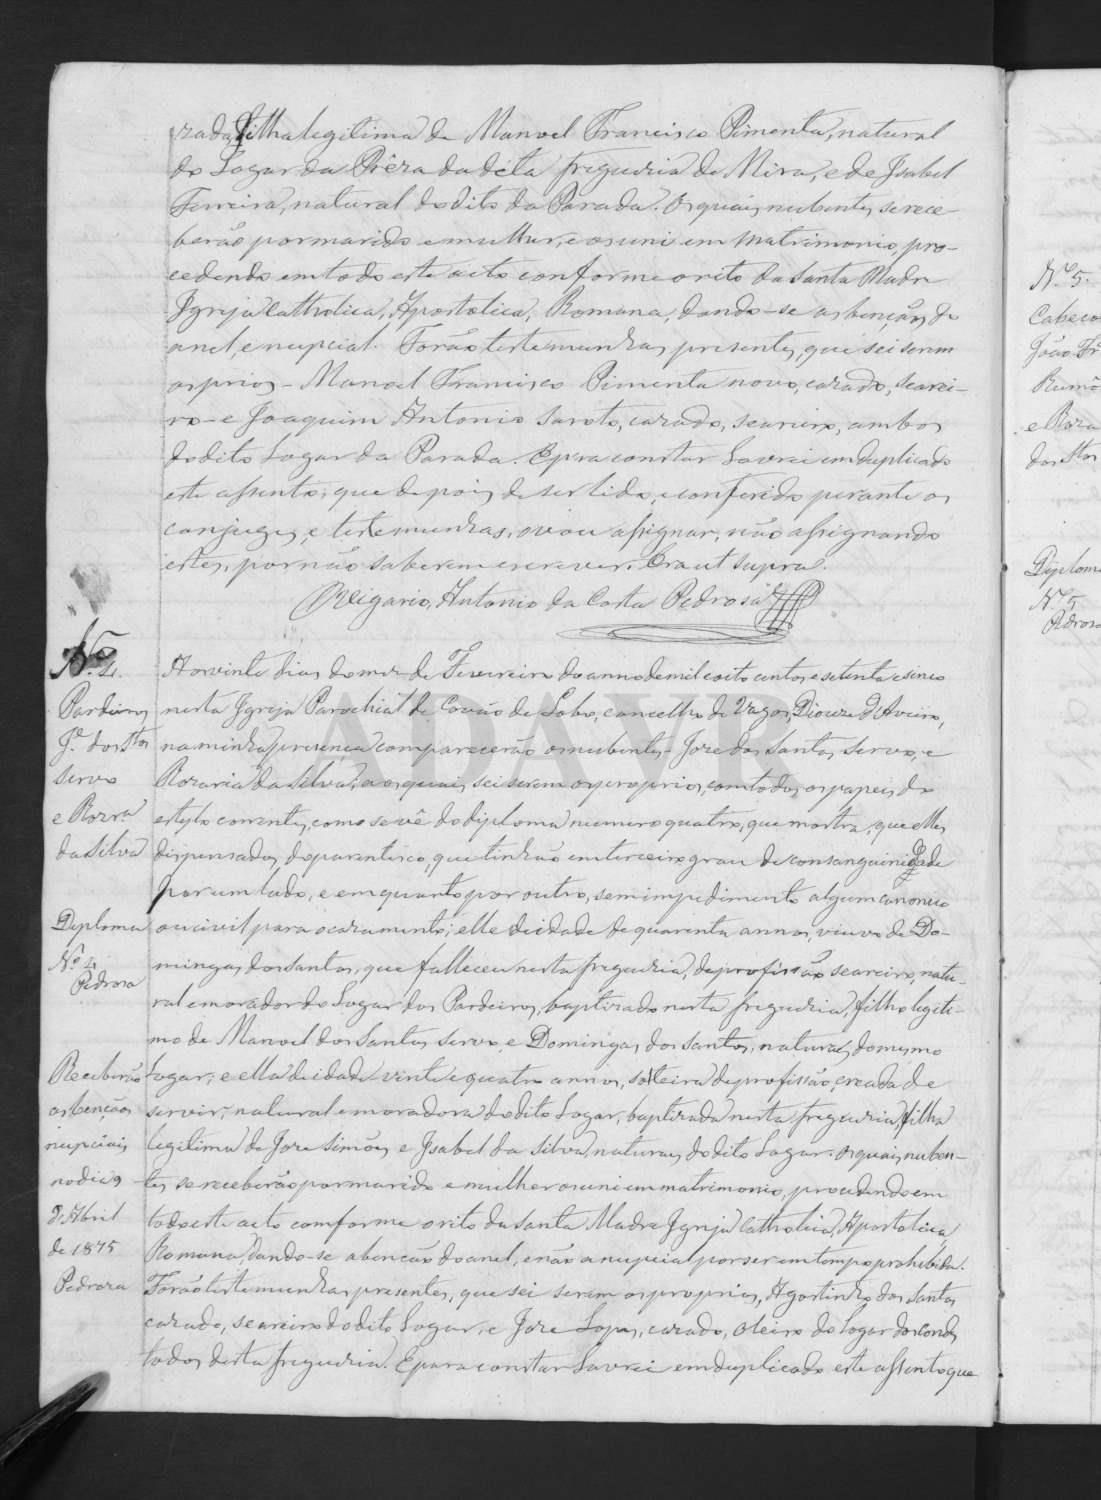 rada, filha legitima de Manoel Francisco Pimenta, natural
do Logar da Prêza da dita freguezia de Mira, e de Isabel
Ferreira, natural do dito da Parada. Os quaes nubentes se rece-
berão por marido e mulher, e os uni em Matrimonio, pro-
cedendo em todo este acto conforme o rito da Santa Madre
Igreja Catholica, Apostolica, Romana, dando-se as bençãos do
anel, e nupcial. Forão testemunhas presentes, que sei serem
os prios - Manoel Francisco Pimenta novo, cazado, searei-
ro - e Joaquim Antonio Saroto, cazado, seareiro, ambos
do dito Logar da Parada. E para constar lavrei em duplicado
este assento, que depois de ser lido, e conferido perante os
conjuges, e testemunhas, vou assignar, não assignando
estes, por não saberem escrever. Era ut supra.
O Vigario, Antonio da Costa Pedrosa
Nº 4.
Pardeiros
Jº. dos Stos
Servo
e Rozrª
da Silva
Diploma
Nº 4
Pedrosa
Receberão
as benções
nupciais
no dia 9
d'Abril
de 1875
Pedroza
Aos vinte dias do mez de Fevereiro do anno de mil e oito centos e setenta e sinco
nesta Igreja Parochial de Covão do Lobo, concelho de Vagos, Dioceze d'Aveiro,
na minha presença comparecerão os nubentes - Joze dos Santos Servo, e
Rozaria da Silva, aos quaes sei serem os proprios, com todos os papeis do
estylo correntes, como se vê do diploma numero quatro, que mostra, que elles
dispensados do parentesco, que tinhão em terceiro grau de consanguinidade
por um lado, e em quarto por outro, sem impedimento algum canonico
ou civil para o cazamento; elle de idade de quarenta annos, viuvo de Do-
mingas dos Santos, que falleceu nesta freguezia, de profissão seareiro, natu-
ral e morador do Logar dos Pardeiros, baptizado nesta freguezia, filho legiti-
mo de Manoel dos Santos Servo, e Domingas dos Santos, naturaes do mesmo
Logar; e ella de idade vinte e quatro annos, solteira de profissão, creada de
servir, natural e moradora do dito Logar, baptizada nesta freguezia, filha
legitima de Joze Simões e Isabel da Silva, naturaes do dito Logar. Os quaes nuben-
tes se receberão por marido e mulher os uni em matrimonio, procedendo em
todo este acto comforme o rito da Santa Madre Igreja Catholica, Apostolica,
Romana, dando-se a benção do anel, e não a nupcial por ser em tempo prohibido.
Forão testemunhas presentes, que sei serem os proprios, Agostinho dos Santos
cazado, seareiro do dito Logar, e Joze Lopes, cazado, oleiro do Logar
todos desta freguezia. E para constar lavrei em duplicado este assento que
ADAVR
Nº 5.
Cabeço
João Frº
Rumã
e Roza
dos Stos
Diploma
Nº 5
Pedrosa